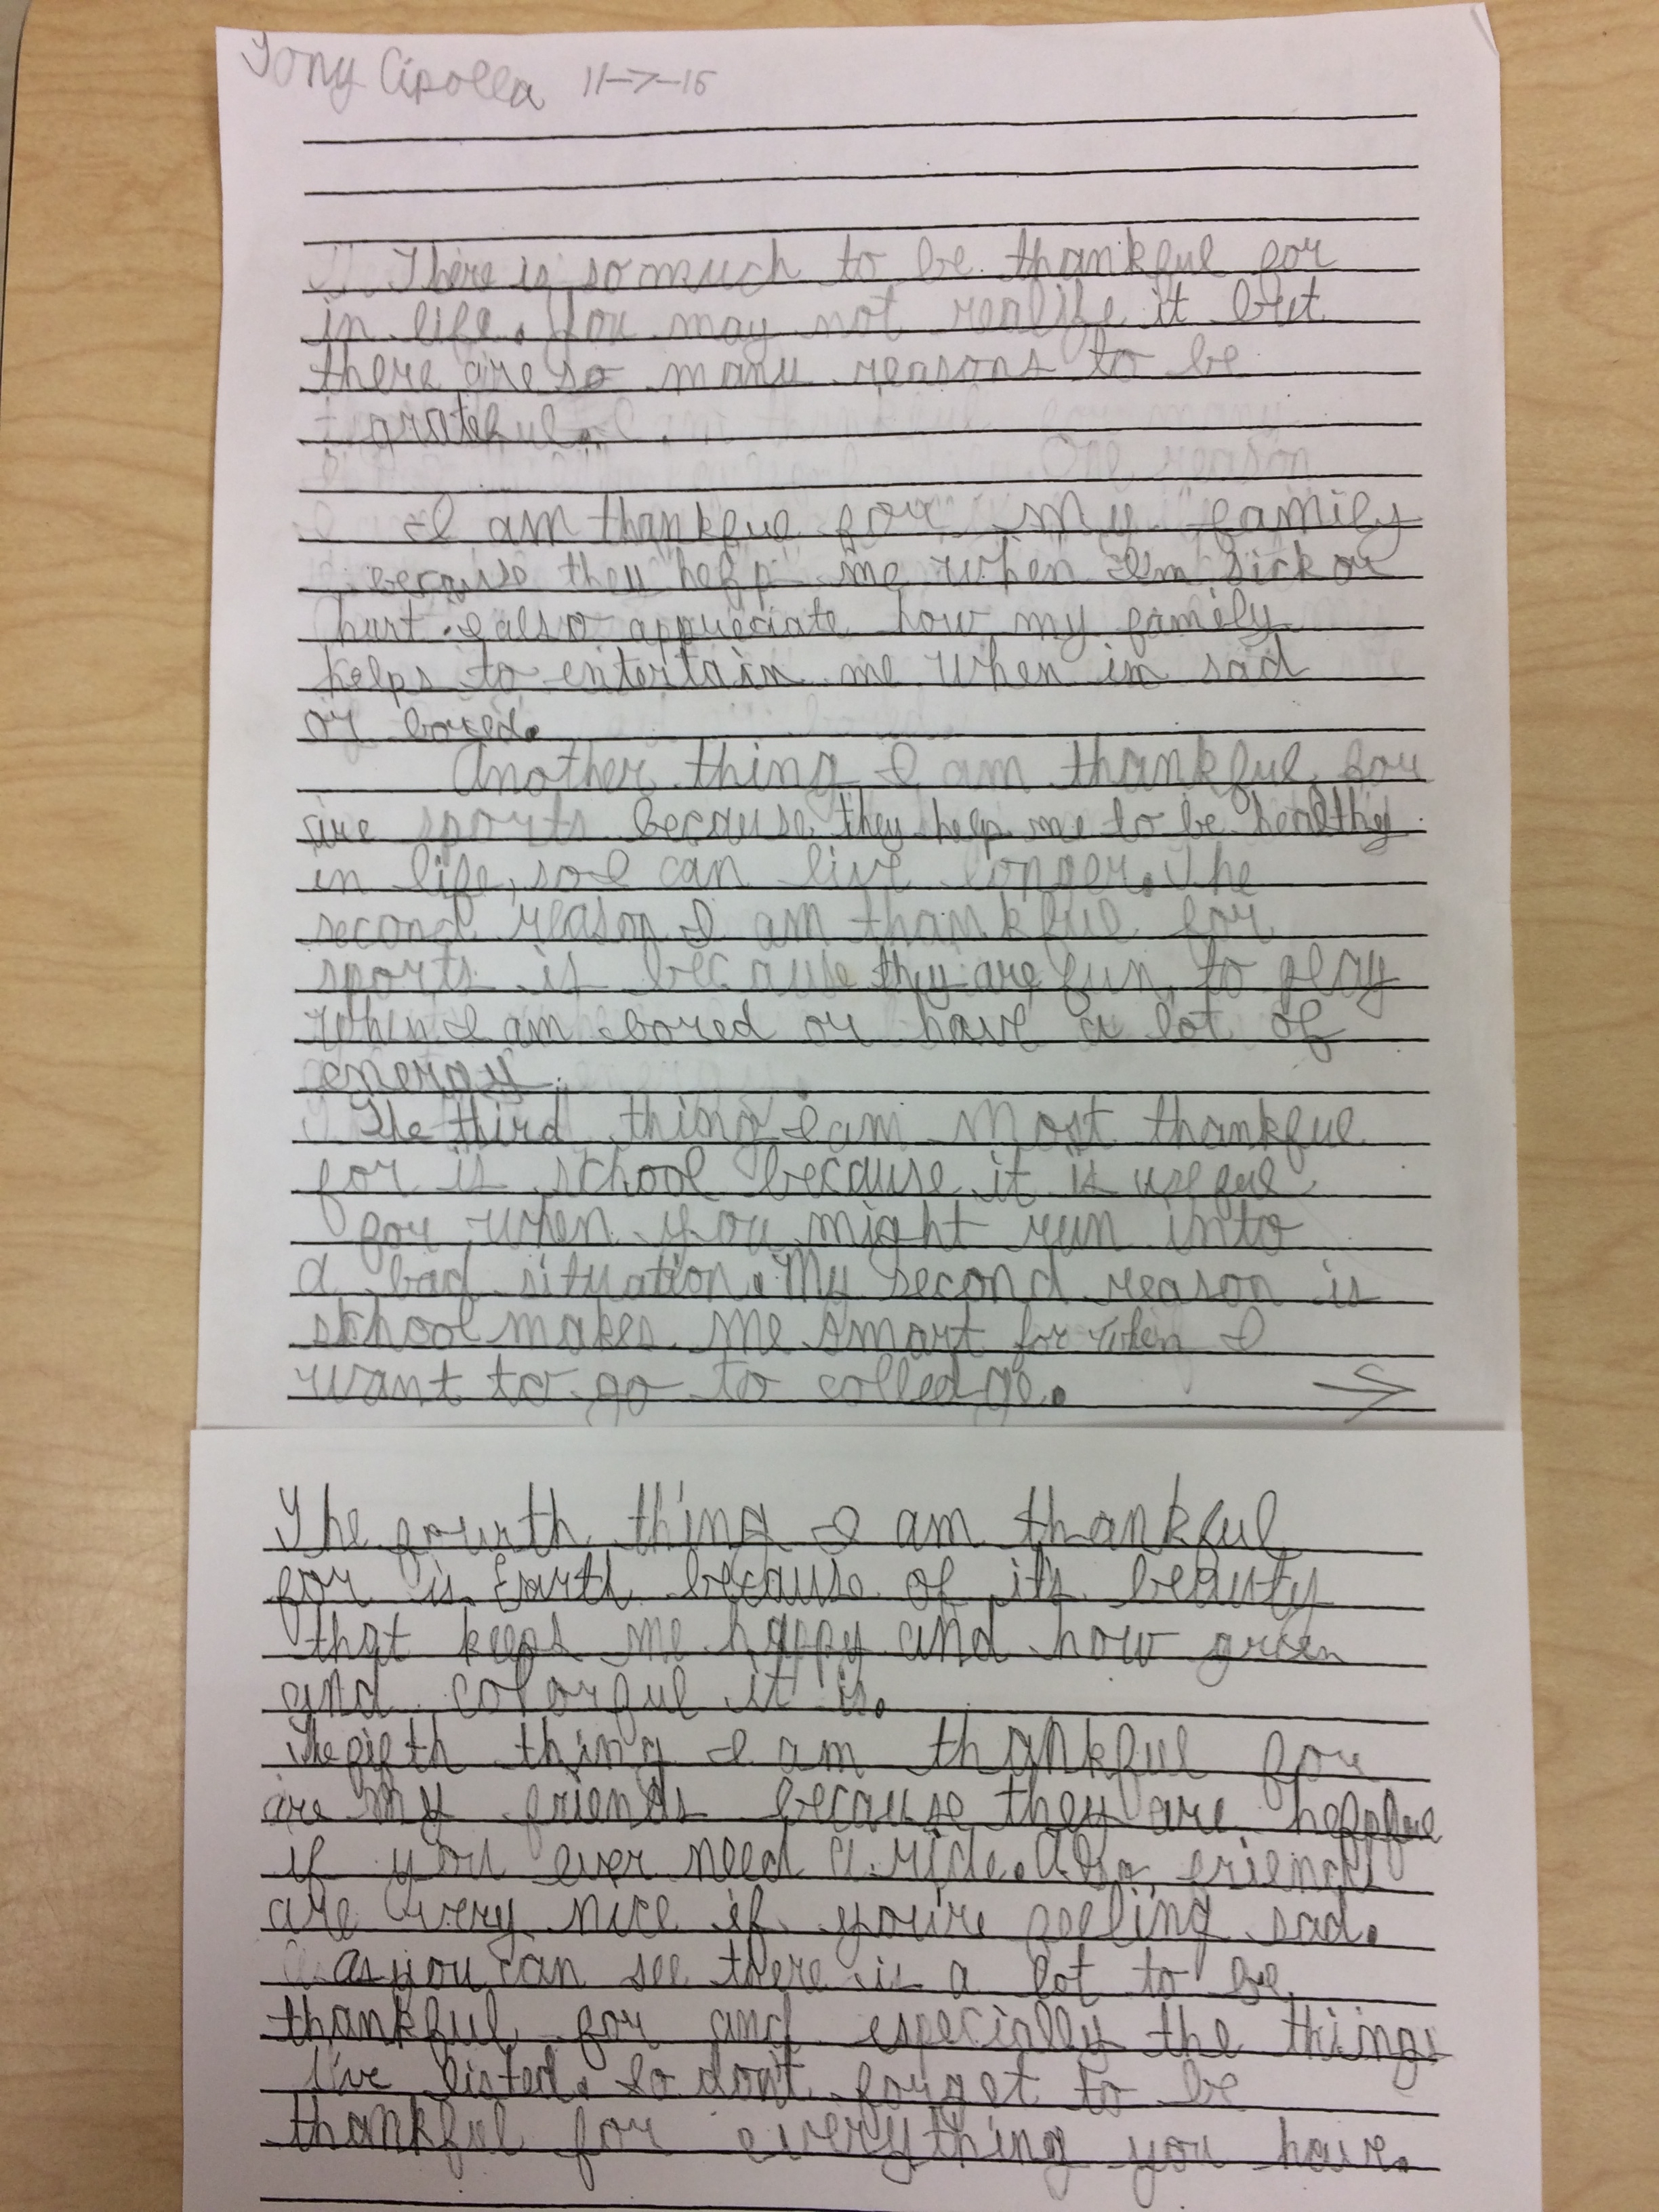 Tony Cipolla 11-7-15
There is so much to be thankful for
in life. You may not realize it but
there are so many reasons to be
grateful.
I am thankful for my family
because they help me when I'm sick or
hurt. I also appreciate how my family
helps to entertain me when im sad
or bored.
Another thing I am thankful for
are sports because they help me to be healthy
in life, so I can live longer. The
second reason I am thankful for
sports is because they are fun to play
when I am bored or have a lot of
energy.
The third thing I am most thankful
for is school because it is useful
for when you might run into
a bad situation. My second reason is
school makes me smart for when I
want to go to colledge.
The fourth thing I am thankful
for is Earth because of it's beauty
that keeps me happy and how green
and colorful it is.
The fifth thing I am thankful for
are my friends because they are helpful
if you ever need a ride. Also friends
are very nice if you're feeling sad.
As you can see there is a lot to be
thankful for and especially the things
I've listed. So don't forget to be
thankful for everything you have.